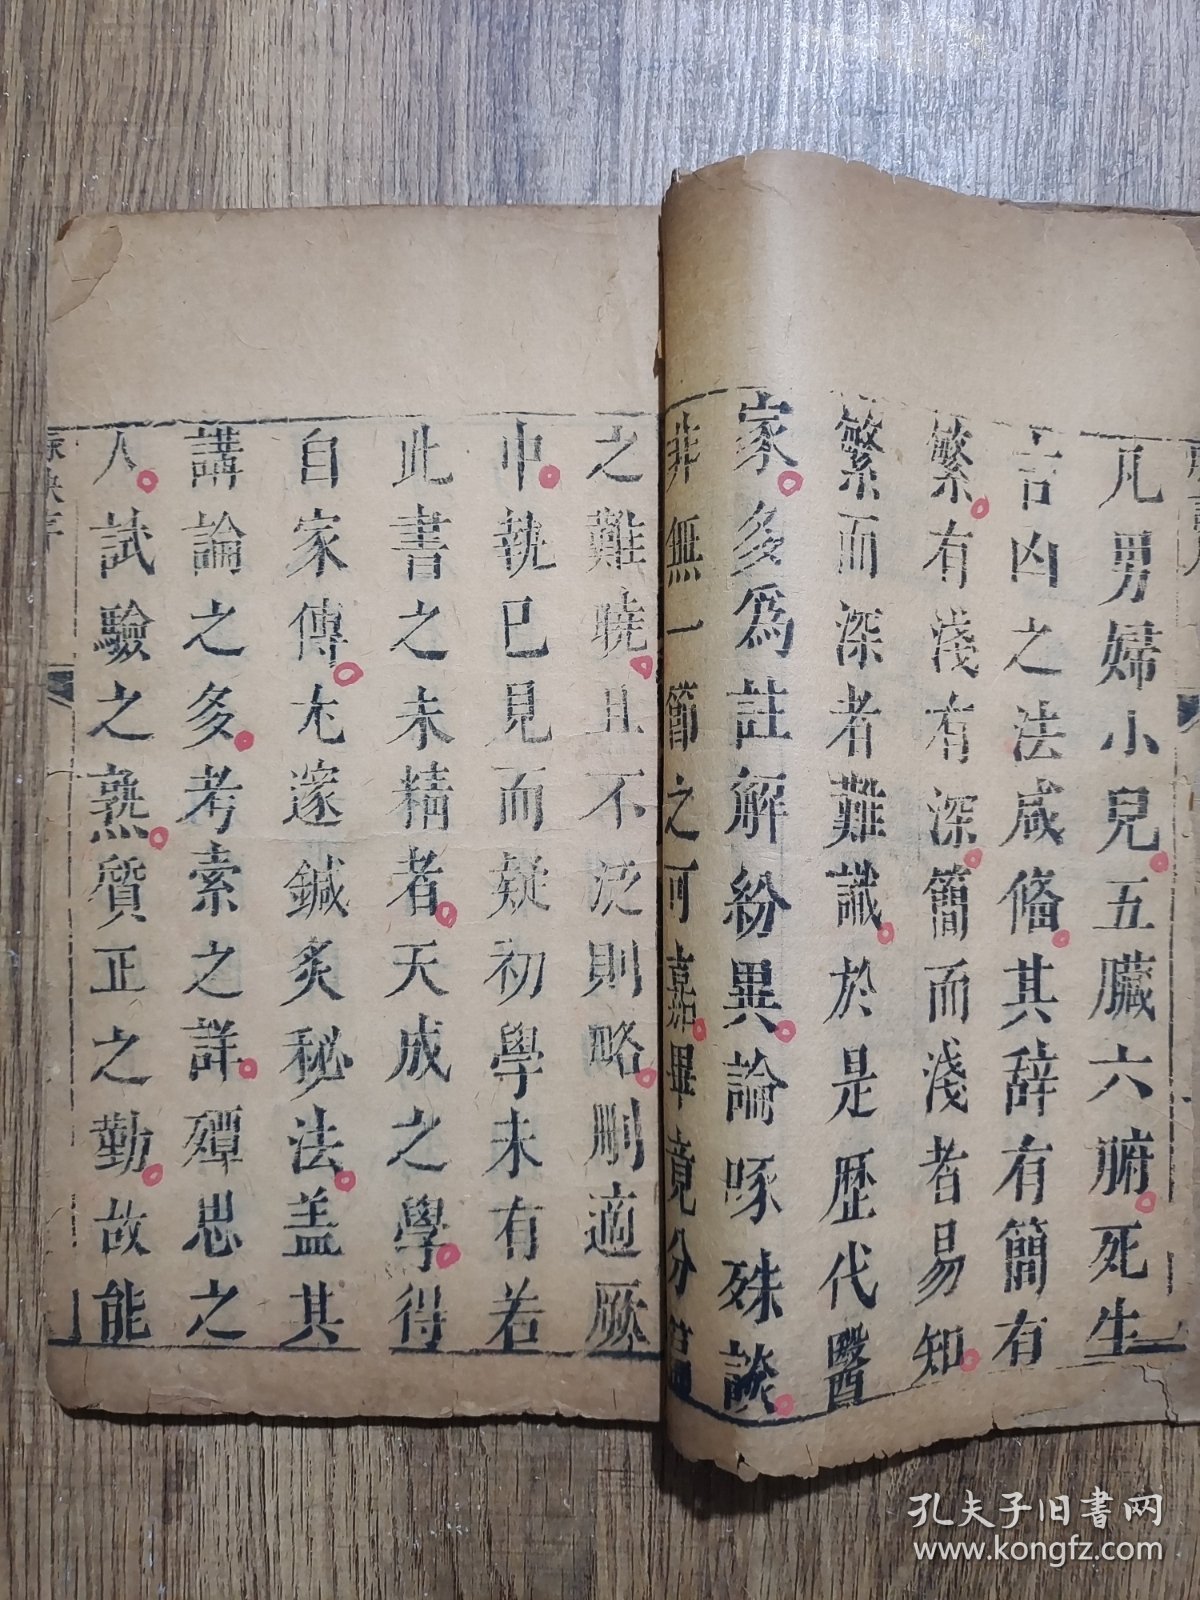 凡男婦小兒五臟六腑死生
吉凶之法咸俻其辞有簡有
繁有淺有深簡而淺者易知
繁而深者難識於是歷代醫
家多為註解紛異論啄殊談
非無一節之可嘉畢竟分篇
之難曉且不泛則略刪適厥
中執已見而疑初學未有若
此書之未精者天成之學得
自家傳尤邃鍼炙秘法盖其
講論之多考索之詳殫思之
人試驗之熟質正之勤故能
孔夫子旧书网
www.kongfz.com